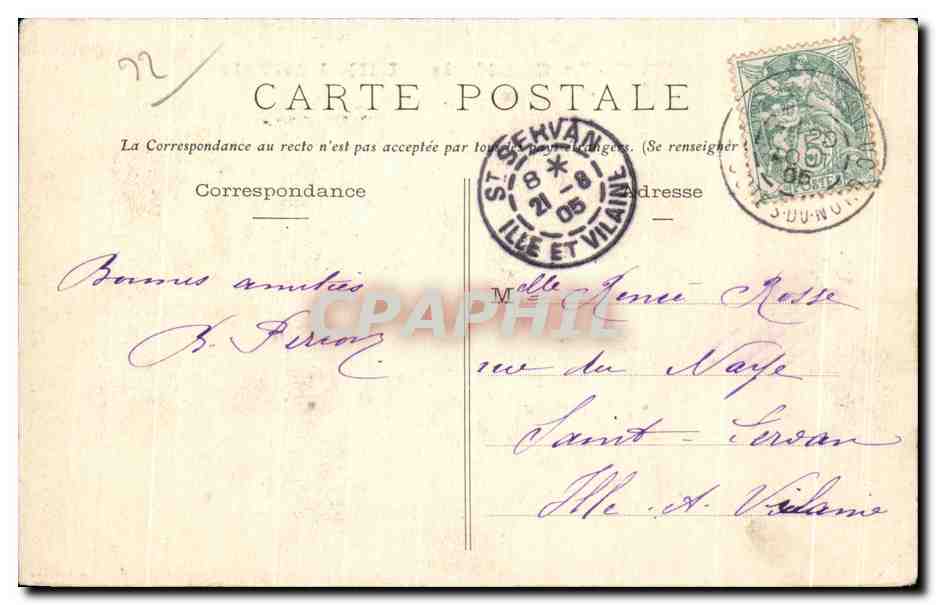 22
CARTE POSTALE
La Correspondance au recto n'est pas acceptée par tous les pays étrangers. (Se renseigner
Correspondance
Adresse
ST SERVAN
8 * 21 -8 05
ILLE ET VILAINE
20
05
5
POSTE
DU-NORD
Bonnes amitiés
Melle Renée Rosse
rue du Naye
Saint-Servan
Ille-A-Vilaine
CPAPHIL